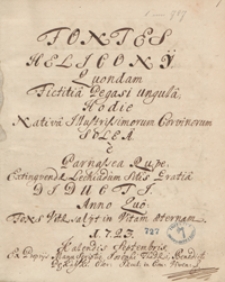 FONTES
HELICONY
Quondam
Fictitiâ Pegasi Ungulâ
Hodie
Nativâ Illustrissimorum Corvinorum
SOLEA
è
Parnassea Rupe.
Extinguendæ Lechiadum Sitis Gratiâ
DIDUCTI.
Anno Quo:
Fons Vitæ Saliit in Vitam æternam
A. 1723.
Kalendis Septembris